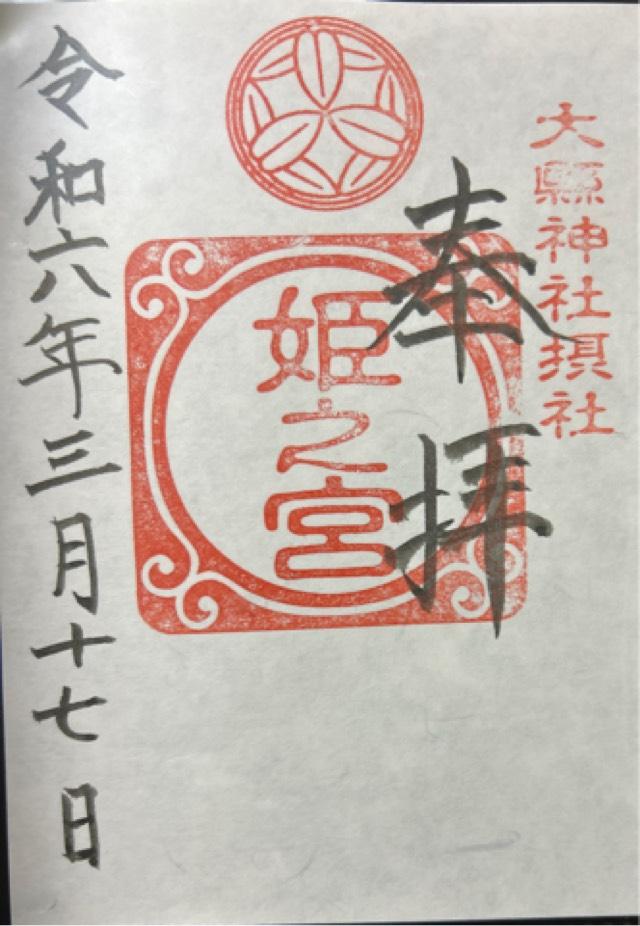 大縣神社摂社
奉拝
姫之宮
令和六年三月十七日